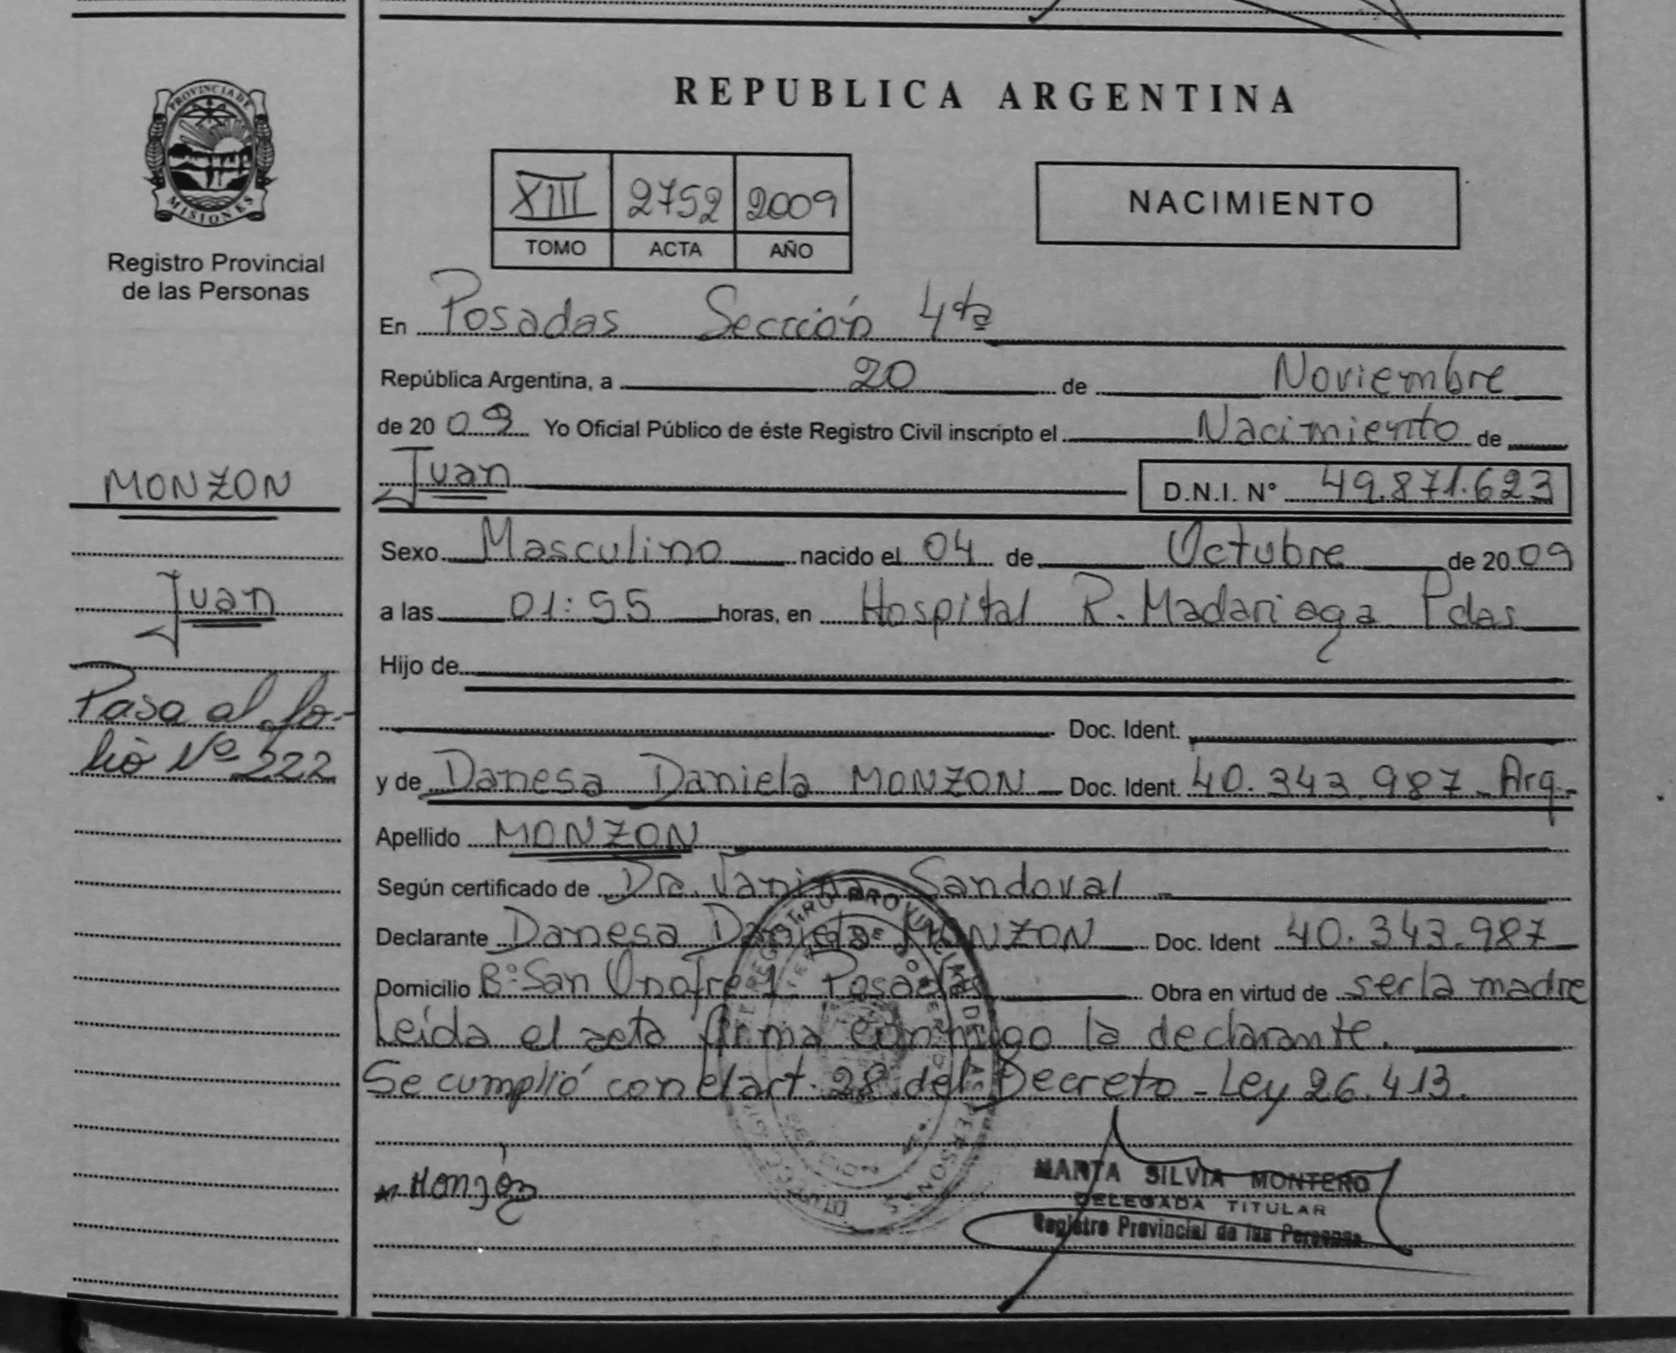 PROVINCIA DE
MISIONES
Registro Provincial
de las Personas
MONZON
Juan
Pasa al fo-
lio Nº 222
REPUBLICA ARGENTINA
XIII 2752 2009
TOMO ACTA AÑO
NACIMIENTO
En Posadas Sección 4ta
República Argentina, a 20 de Noviembre
de 20 09 Yo Oficial Público de éste Registro Civil inscripto el Nacimiento de
Juan D.N.I. N° 49.871.623
Sexo Masculino nacido el 04 de Octubre de 20 09
a las 01:55 horas, en Hospital R. Madariaga Pdas
Hijo de
Doc. Ident.
y de Danesa Daniela MONZON Doc. Ident. 40.343.987 Arg.
Apellido MONZON
Según certificado de Dra. Vanina Sandoval
Declarante Danesa Daniela MONZON Doc. Ident 40.343.987
Domicilio B° San Onofre 1 - Posadas Obra en virtud de ser la madre
Leída el acta firma conmigo la declarante.
Se cumplió con el art. 28 del Decreto - Ley 26.413.
Monzón
MARTA SILVIA MONTERO
DELEGADA TITULAR
Registro Provincial de las Personas